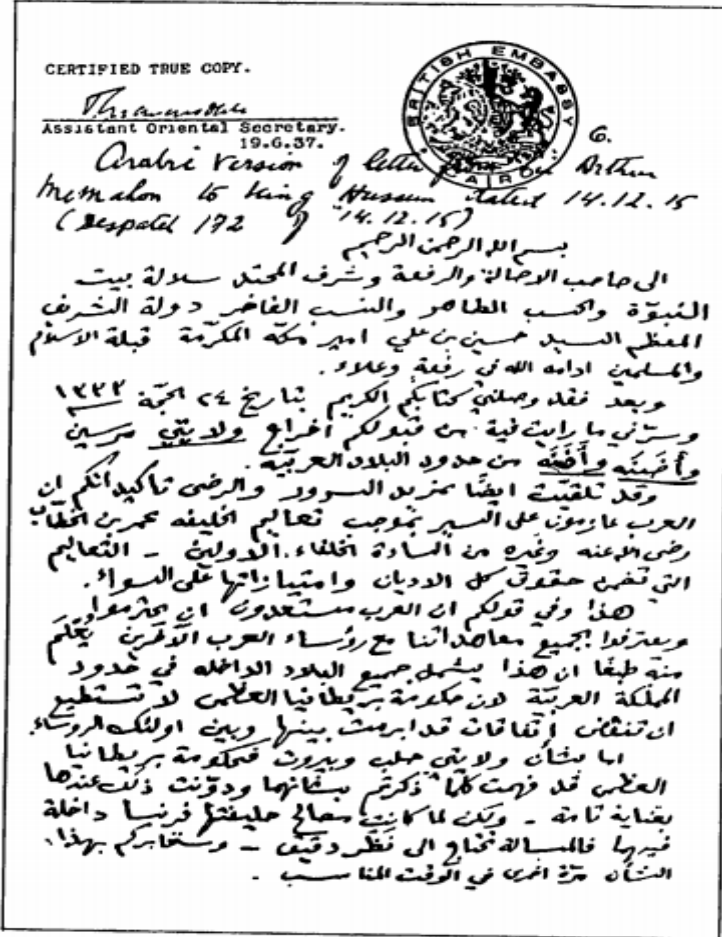 CERTIFIED TRUE COPY.
BRITISH EMBASSY
CAIRO
Assistant Oriental Secretary.
19.6.37.
6.
Arabic Version of letter from Arthur
McMahon to King Hussein dated 14.12.15
(Despatch 172 of 14.12.15)
بسم الله الرحمن الرحيم
الى صاحب الاصالة والرفعة وشرف المحتد سلالة بيت
النبوّة والحسب الطاهر والنسب الفاخر دولة الشريف
المعظم السيد حسين بن علي امير مكة المكرّمة قبلة الاسلام
والمسلمين ادامه الله في رفعة وعلاء.
وبعد فقد وصلني كتابكم الكريم بتاريخ ٢٤ الحجّة ١٣٣٣
وسرّني ما رأيت فيه من قبولكم اخراج ولايتي مرسين
وأضنه وأضنه من حدود البلاد العربيّة.
وقد تلقيت ايضًا بمزيد السرور والرضى تأكيداتكم ان
العرب عازمون على السير بموجب تعاليم الخليفه عمر بن الخطّاب
رضى الله عنه وغيره من السادة الخلفاء الاولين - التعاليم
التي تضمن حقوق كل الاديان وامتيازاتها على السواء.
هذا وفي قولكم ان العرب مستعدون ان يحترموا
ويعترفوا بجميع معاهداتنا مع رؤساء العرب الآخرين يُعْلَم
منه طبعًا ان هذا يشمل جميع البلاد الداخله في حدود
المملكة العربيّة لان حكومة بريطانيا العظمى لا تستطيع
ان تنقض اتّفاقات قد ابرمت بينها وبين اولئك الروساء.
اما بشأن ولايتي حلب وبيروت فحكومة بريطانيا
العظمى قد فهمت كلّما ذكرتم بشأنهما ودوّنت ذلك عندها
بعناية تامة - ولكن لما كانت مصالح حليفتها فرنسا داخلة
فيهما فالمسالة تحتاج الى نظر دقيق - وسنخابركم بهذا
الشأن مرّة اخرى في الوقت المناسب -